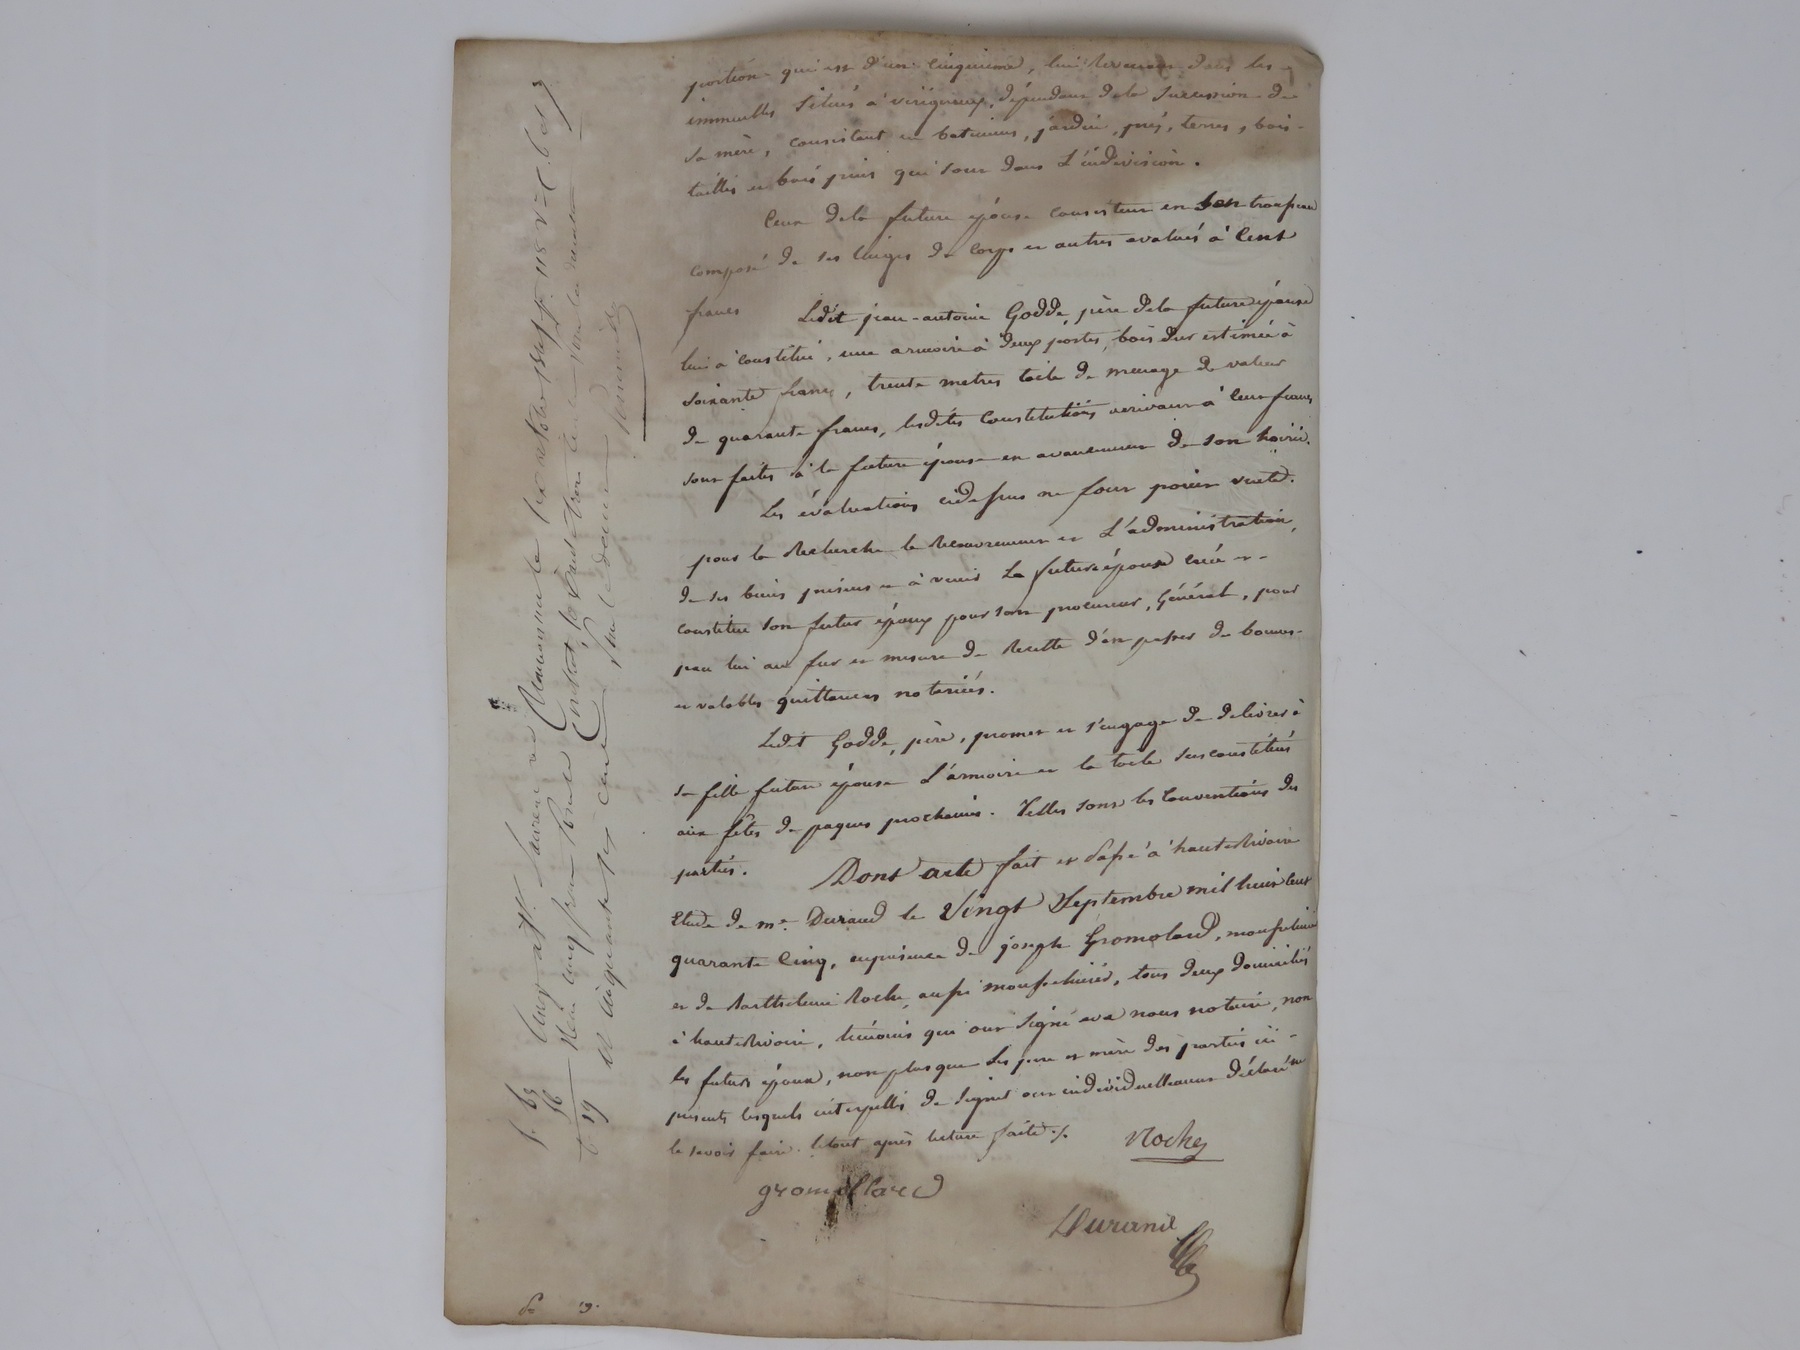 portion qui est d'un cinquième, lui revenant dans les
immeubles situés à virigneux, dépendant de la succession de
sa mère, consistant en batiments, jardin, prés, terres, bois
taillis et bois pins qui sont dans L'indivision.
Ceux de la future épouse consistent en son trousseau
composé de ses linges de corps et autres évalués à Cent
francs
Ledit jean-antoine Godde, père de la future épouse
lui a constitué, une armoire à deux portes, bois dur estimée à
soixante francs, trente metres toile de menage de valeur
de quarante francs, lesdites Constitutions revenant à Cent francs
sont faites à la future épouse en avancement de son hoirie.
Les évaluations cidessus ne font point vente.
pour la Recherche le Recouvrement et L'administration,
de ses biens présens et à venir La future épouse crée et
constitue son futur époux pour son procureur, Général, pour
par lui au fur et mesure de Recette d'en passer de bonnes
et valables quittances notariées.
Ledit Godde, père, promet et s'engage de delivrer à
sa fille future épouse L'armoire et la toile susconstitués
aux fêtes de paques prochaines. Telles sont les Conventions des
parties.
Dont acte fait et passé à hauterivoire
Etude de me. Durand le Vingt Septembre mil huit cent
quarante Cinq, en présence de joseph Gromolard,
et de Barthelemi Roche, aussi tous deux domiciliés
à hauterivoire, témoins qui ont signé avec nous notaire, non
les futurs époux, non plus que les pere et mère des parties ici
présents lesquels interpellés de signer ont individuellement déclaré ne
le savoir faire. letout après lecture faite ./.
Roche
gromollard
Durand
Enregistré à St. Laurent de Chamousset le octobre 1845 fo. 118 Vo. C. 6
Reçu cinq francs pour Contrat
et cinquante centimes
f. 65
56
19